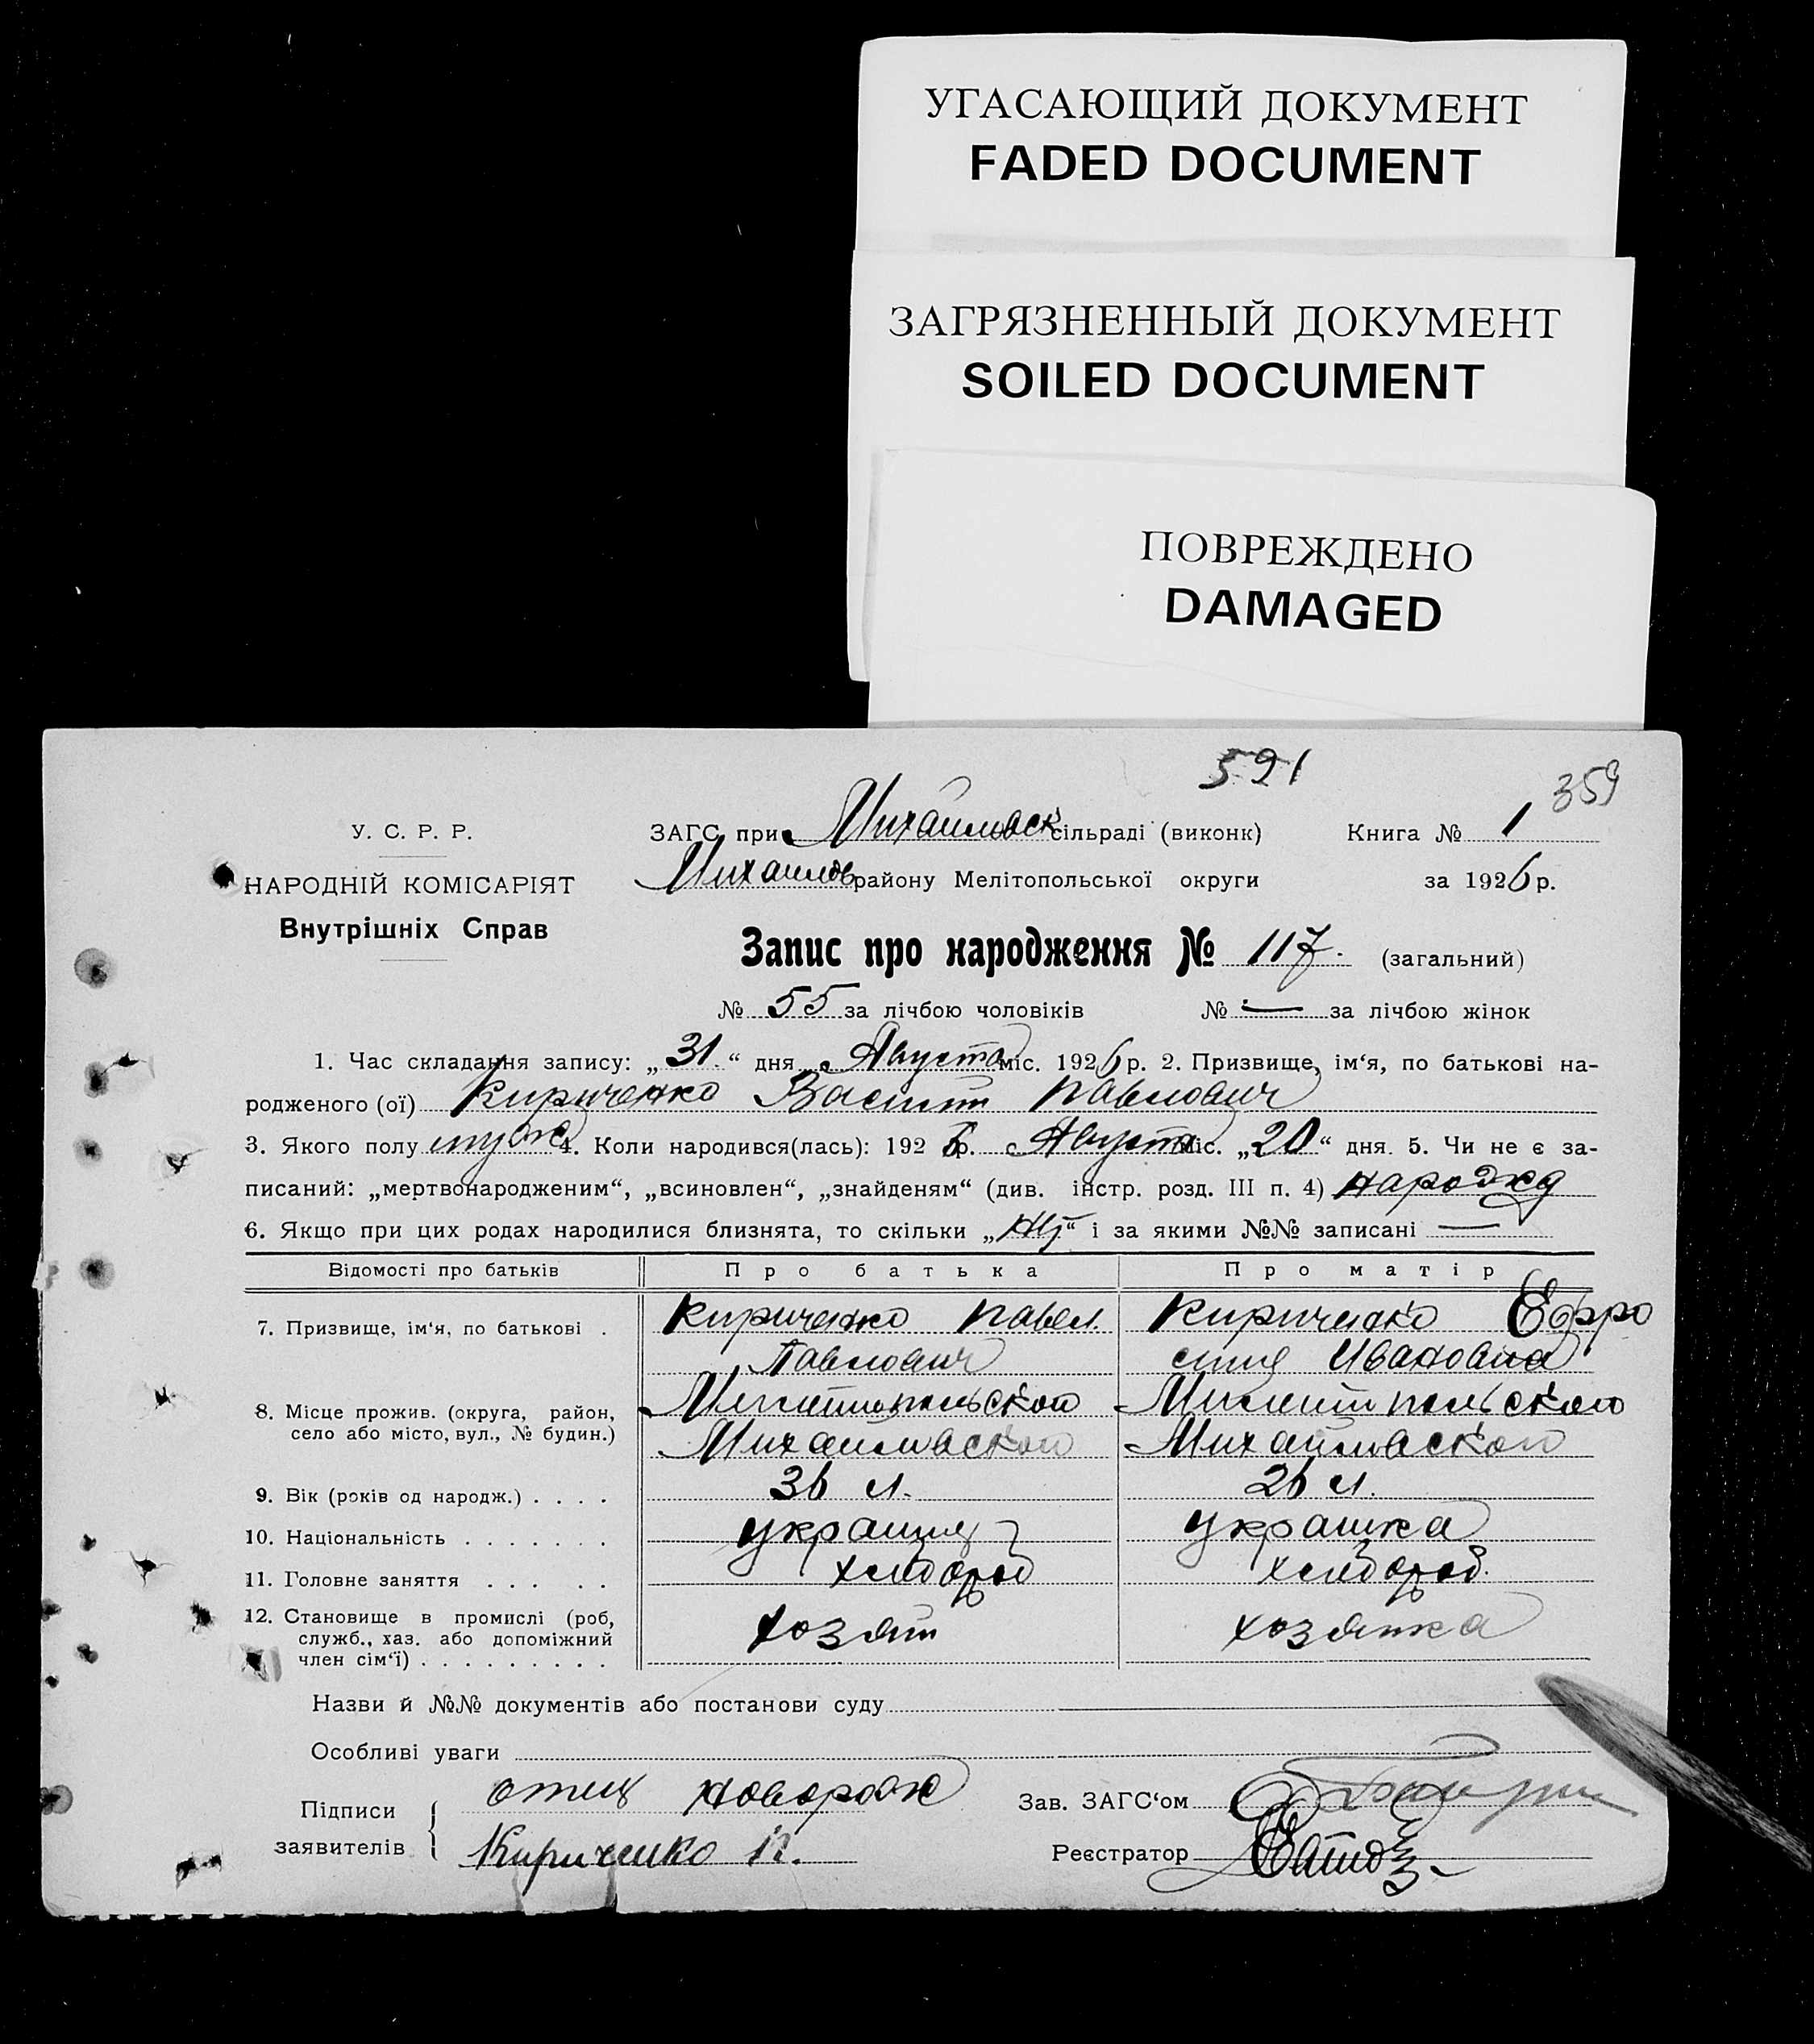 УГАСАЮЩИЙ ДОКУМЕНТ
FADED DOCUMENT
ЗАГРЯЗНЕННЫЙ ДОКУМЕНТ
SOILED DOCUMENT
ПОВРЕЖДЕНО
DAMAGED
591
359
У. С. Р. Р.
ЗАГС при Михайловск сільраді (виконк) Книга № 1
Михайлов району Мелітопольської округи за 1926 р.
НАРОДНІЙ КОМІСАРІЯТ
Внутрішніх Справ
Запис про народження № 117. (загальний)
№ 55 за лічбою чоловіків № — за лічбою жінок
1. Час складання запису: „31“ дня Августа міс. 1926 р. 2. Призвище, ім‘я, по батькові на-
родженого (ої) Кириченко Василий Павлович
3. Якого полу муж 4. Коли народився(лась): 1926 р. Августа міс. „20“ дня. 5. Чи не є за-
писаний: „мертвонародженим“, „всиновлен“, „знайденям“ (див. інстр. розд. III п. 4) народжд
6. Якщо при цих родах народилися близнята, то скільки „ “ і за якими №№ записані —
Відомості про батьків Про батька Про матір
7. Призвище, ім‘я, по батькові . Кириченко Павел. Кириченко Ефро
Павлович синя Ивановна
8. Місце прожив. (округа, район, Милитопольского Милитпольского
село або місто, вул., № будин.) Михайловского Михайловского
9. Вік (років од народж.) . . . . 36 л. 26 л.
10. Національність . . . . . . . украинец украинка
11. Головне заняття . . . . . хлебороб хлебороб.
12. Становище в промислі (роб, хозяин хозяйка
служб., хаз. або допоміжний
член сім‘ї) . . . . . . . . .
Назви й №№ документів або постанови суду
Особливі уваги
Підписи
заявителів
отец новорож
Кириченко П.
Зав. ЗАГС‘ом
Реєстратор